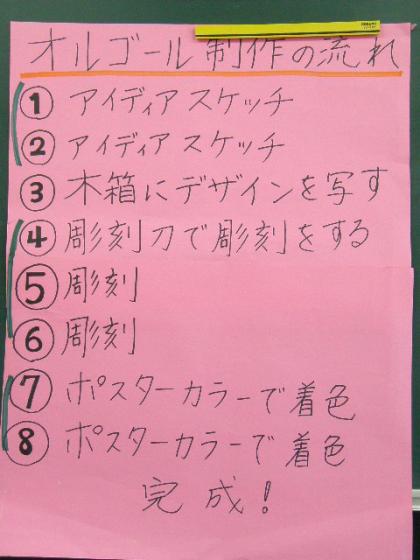 オルゴール制作の流れ
① アイディアスケッチ
② アイディアスケッチ
③ 木箱にデザインを写す
④ 彫刻刀で彫刻をする
⑤ 彫刻
⑥ 彫刻
⑦ ポスターカラーで着色
⑧ ポスターカラーで着色
完成!